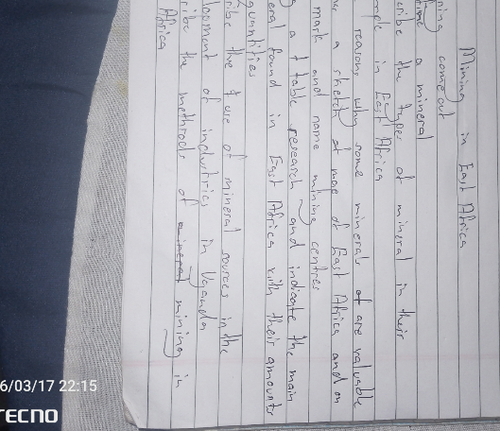 Mining in East Africa
ning come out
a mineral
cribe the types of mineral in their
mple in East Africa
reason why some minerals of are valuable
a sketch of map of East Africa and on
mark and name mining centres
a t table research and indicate the main
eral found in East Africa with their amounts
quantities
ribe the t use of mineral sources in the
lopment of industries in Uganda
ribe the methods of mining in
Africa
6/03/17 22:15
TECNO